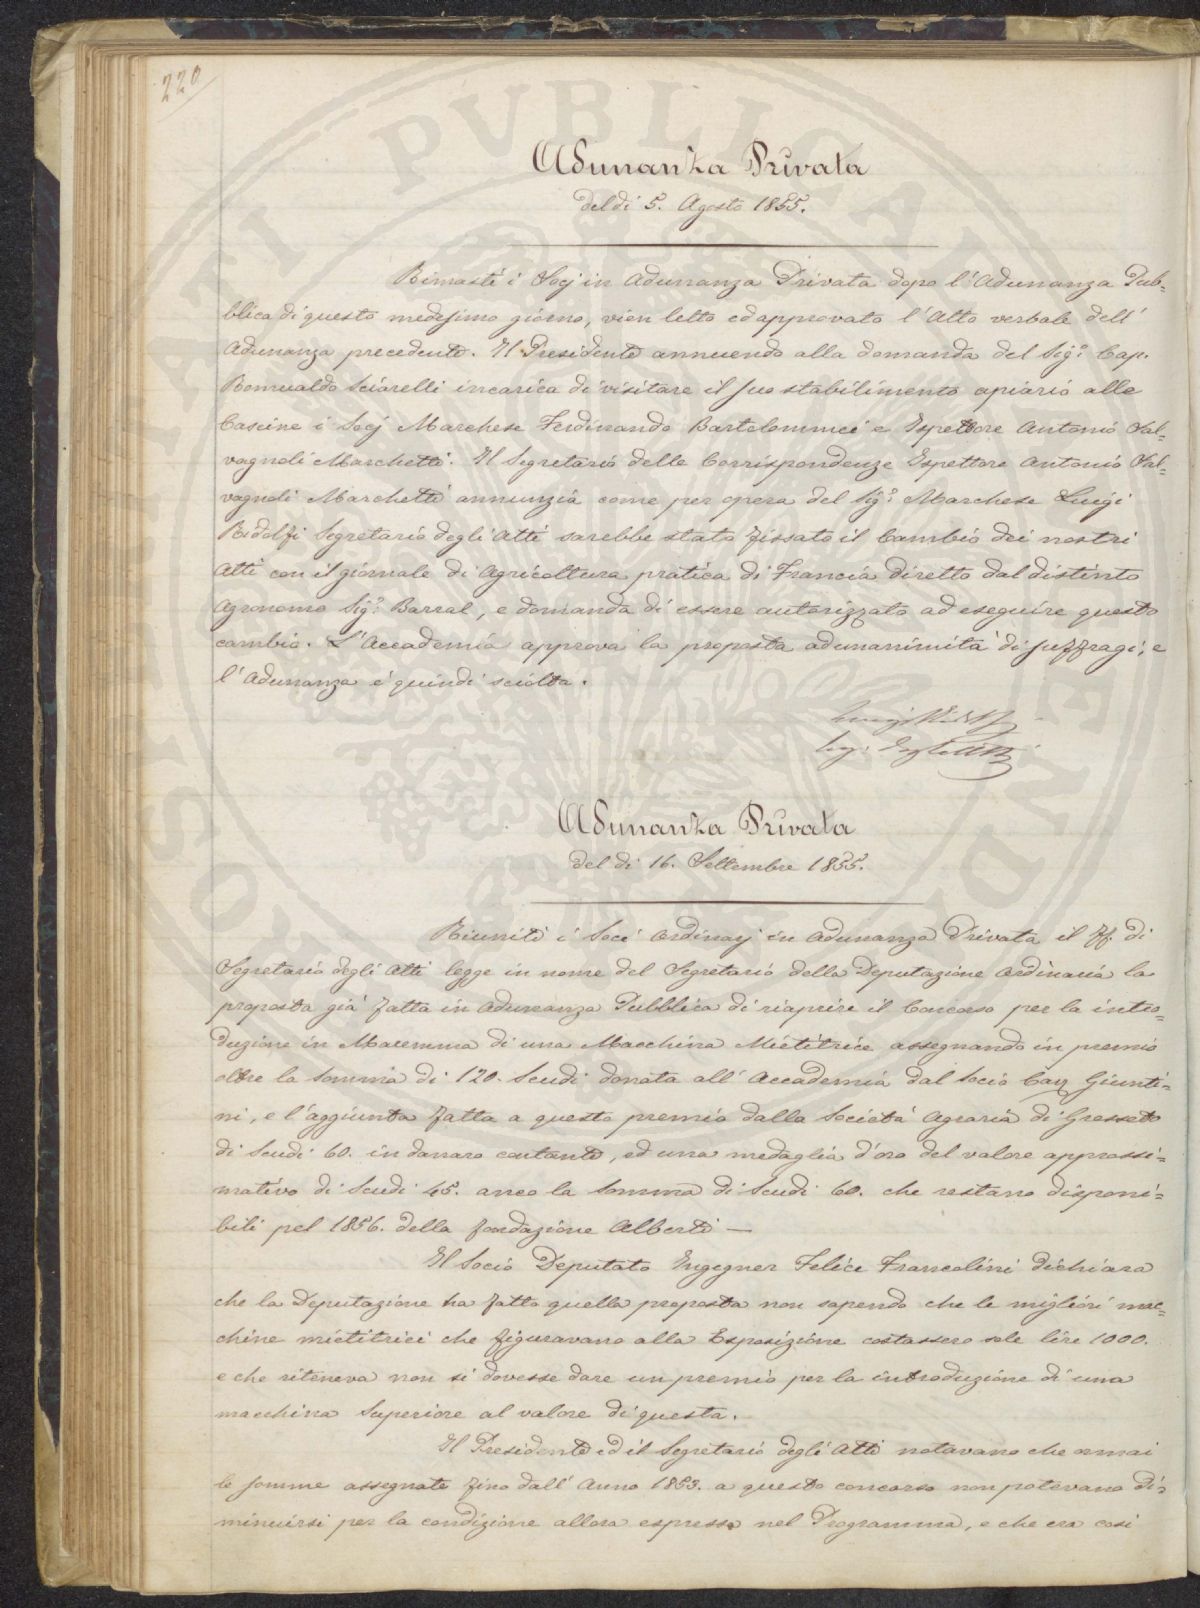 220
Adunanza Privata
del dì 5. Agosto 1855.
Rimasti i Socj in Adunanza Privata dopo l'Adunanza Pub=
blica di questo medesimo giorno, vien letto ed approvato l'Atto verbale dell'
Adunanza precedente. Il Presidente annuendo alla domanda del Sigr. Cap.
Romualdo Sciarelli incarica di visitare il suo stabilimento apiario alle
Cascine i Socj Marchese Ferdinando Bartolommei e Ispettore Antonio Sal=
vagnoli Marchetti. Il Segretario delle Corrispondenze Ispettore Antonio Sal=
vagnoli Marchetti annunzia come per opera del Sigr. Marchese Luigi
Ridolfi Segretario degli Atti sarebbe stato fissato il Cambio dei nostri
Atti con il giornale di Agricoltura pratica di Francia diretto dal distinto
Agronomo Sigr. Barral, e domanda di essere autorizzato ad eseguire questo
cambio. L'Accademia approva la proposta ad unanimità di suffragi, e
l'Adunanza è quindi sciolta.
Luigi Ridolfi
Seg. degli Atti
Adunanza Privata
del dì 16. Settembre 1855.
Riuniti i Soci Ordinarj in Adunanza Privata il ff. di
Segretario degli Atti legge in nome del Segretario della Deputazione Ordinaria la
proposta già fatta in Adunanza Pubblica di riaprire il Concorso per la intro=
duzione in Maremma di una Macchina Mietitrice assegnando in premio
oltre la somma di 120. Scudi donata all'Accademia dal Socio Cav Giunti=
ni, e l'aggiunta fatta a questo premio dalla Società Agraria di Grosseto
di Scudi 60. in danaro contante, ed una medaglia d'oro del valore approssi=
mativo di Scudi 45. anco la Somma di Scudi 60. che restano disponi=
bili pel 1856. della fondazione Alberti —
Il Socio Deputato Ingegner Felice Francolini dichiara
che la Deputazione ha fatto quella proposta non sapendo che le migliori mac=
chine mietitrici che figuravano alla Esposizione costassero sole lire 1000.
e che riteneva non si dovesse dare un premio per la introduzione di una
macchina superiore al valore di questa.
Il Presidente ed il Segretario degli Atti notavano che ormai
le somme assegnate fino dall'Anno 1853. a questo concorso non potevano di=
minuirsi per la condizione allora espressa nel Programma, e che era così